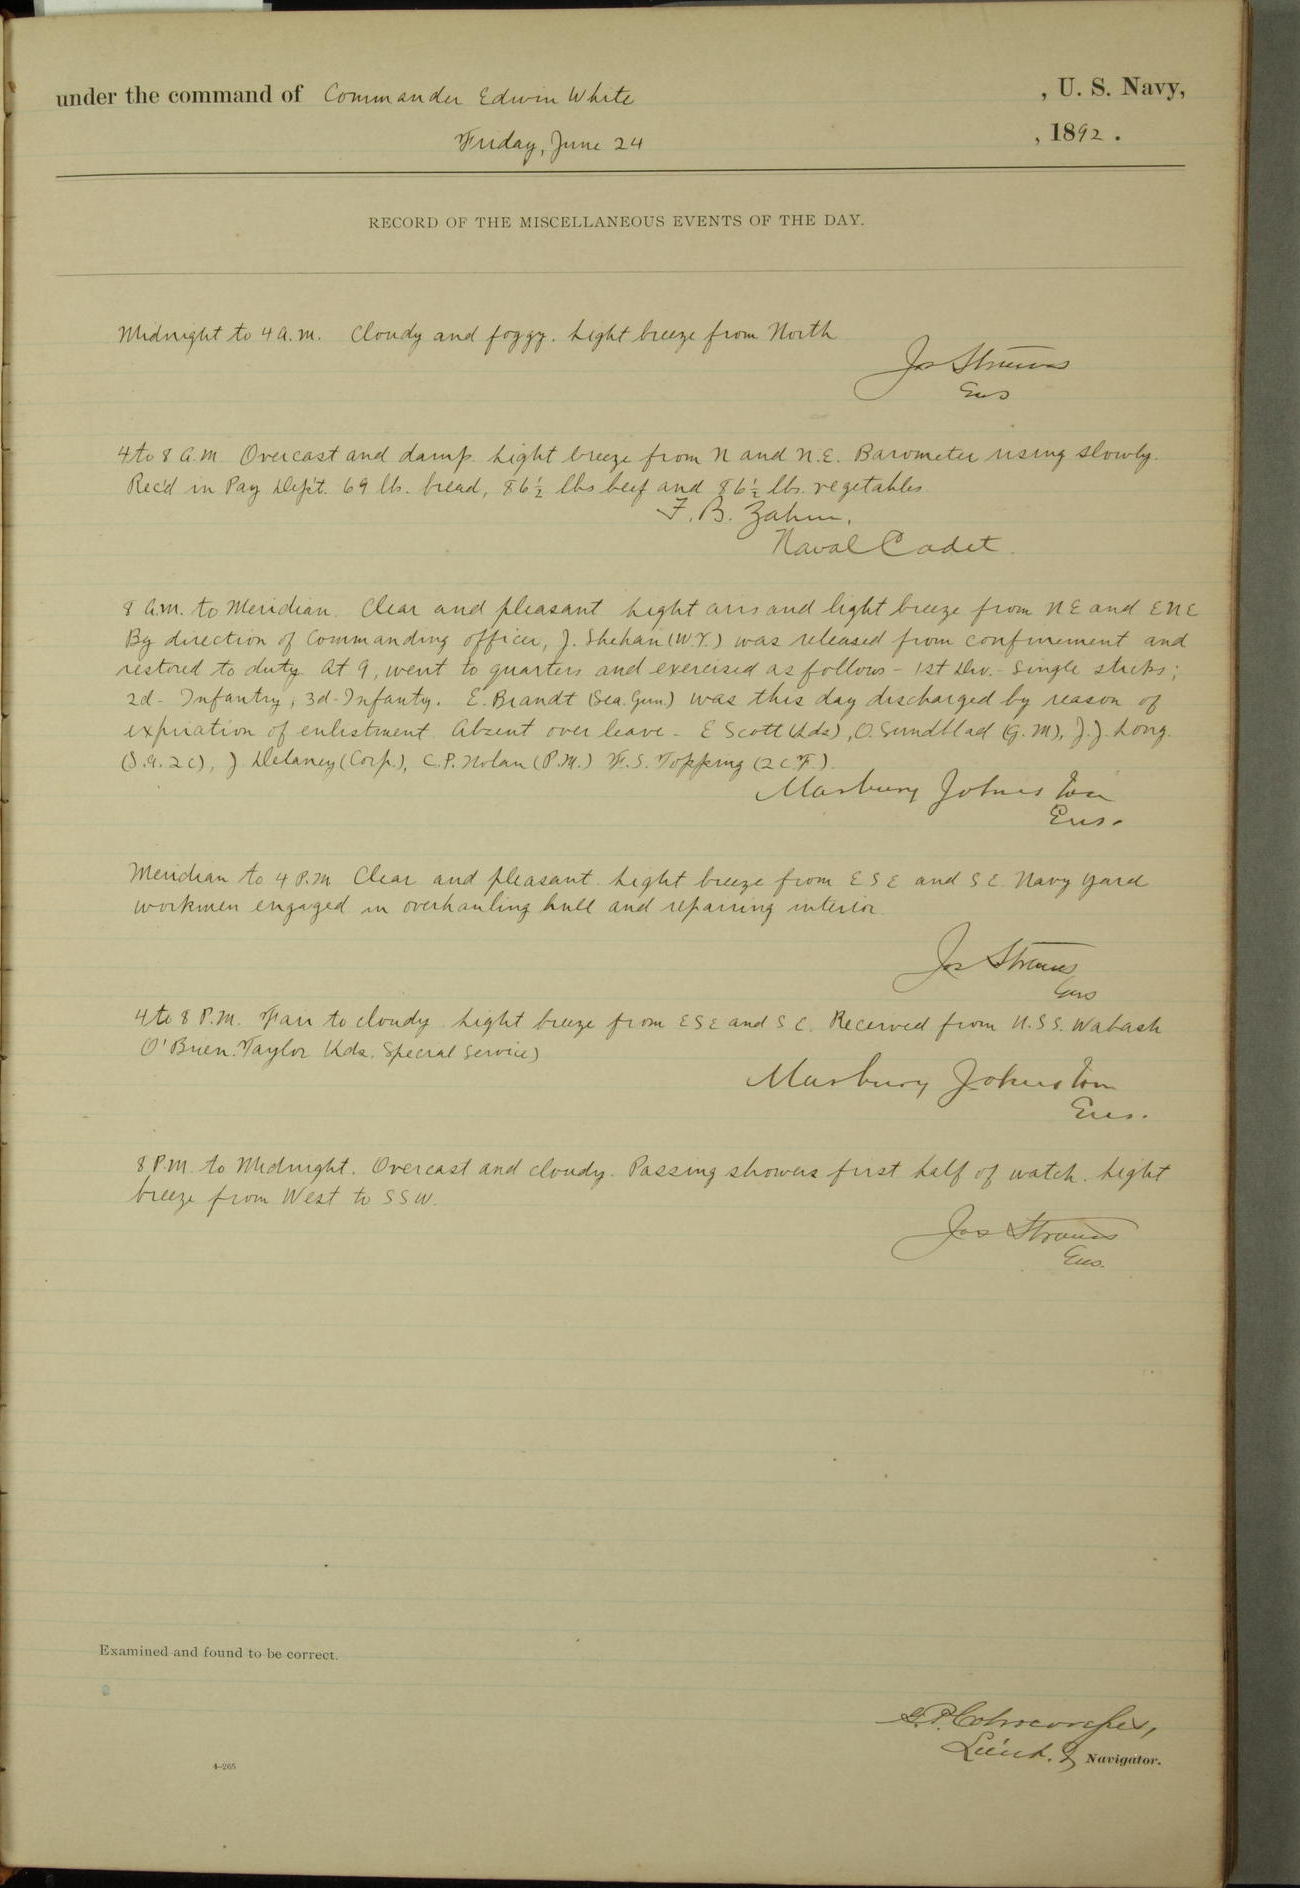 under the command of Commander Edwin White , U. S. Navy,
Friday, June 24 , 1892.
RECORD OF THE MISCELLANEOUS EVENTS OF THE DAY.
Midnight to 4 a.m. Cloudy and foggy. Light breeze from North
Jos Strauss
Ens
4 to 8 a.m. Overcast and damp. Light breeze from N and N.E. Barometer rising slowly.
Rec'd in Pay Dep't. 69 lbs. bread, 86½ lbs beef and 86½ lbs. vegetables.
F. B. Zahm,
Naval Cadet.
8 a.m. to Meridian. Clear and pleasant Light airs and light breeze from NE and ENE
By direction of Commanding officer, J. Shehan (W.T.) was released from confinement and
restored to duty. At 9, went to quarters and exercised as follows - 1st Div. - Single sticks;
2d - Infantry; 3d - Infanty. E. Brandt (Sea. Gun.) was this day discharged by reason of
expiration of enlistment. Absent over leave - E Scott (Lds), O. Sundblad (G.M), J.J. Long.
(S.a.2c), J. Delaney (Corp.), C.P. Nolan (P.M.) F.S. Topping (2 C.F.).
Marbury Johnston
Ens.
Meridian to 4 P.M. Clear and pleasant. Light breeze from ESE and SE. Navy Yard
workmen engaged in overhauling hull and repairing interior.
Jos Strauss
Ens
4 to 8 P.M. Fair to cloudy. Light breeze from ESE and SE. Received from U.S.S. Wabash
O'Brien. Taylor Lds. Special Service)
Marbury Johnston
Ens.
8 P.M. to Midnight. Overcast and cloudy. Passing showers first half of watch. Light
breeze from West to SSW.
Jos Strauss
Ens.
Examined and found to be correct.
Lieut. & Navigator.
4-265